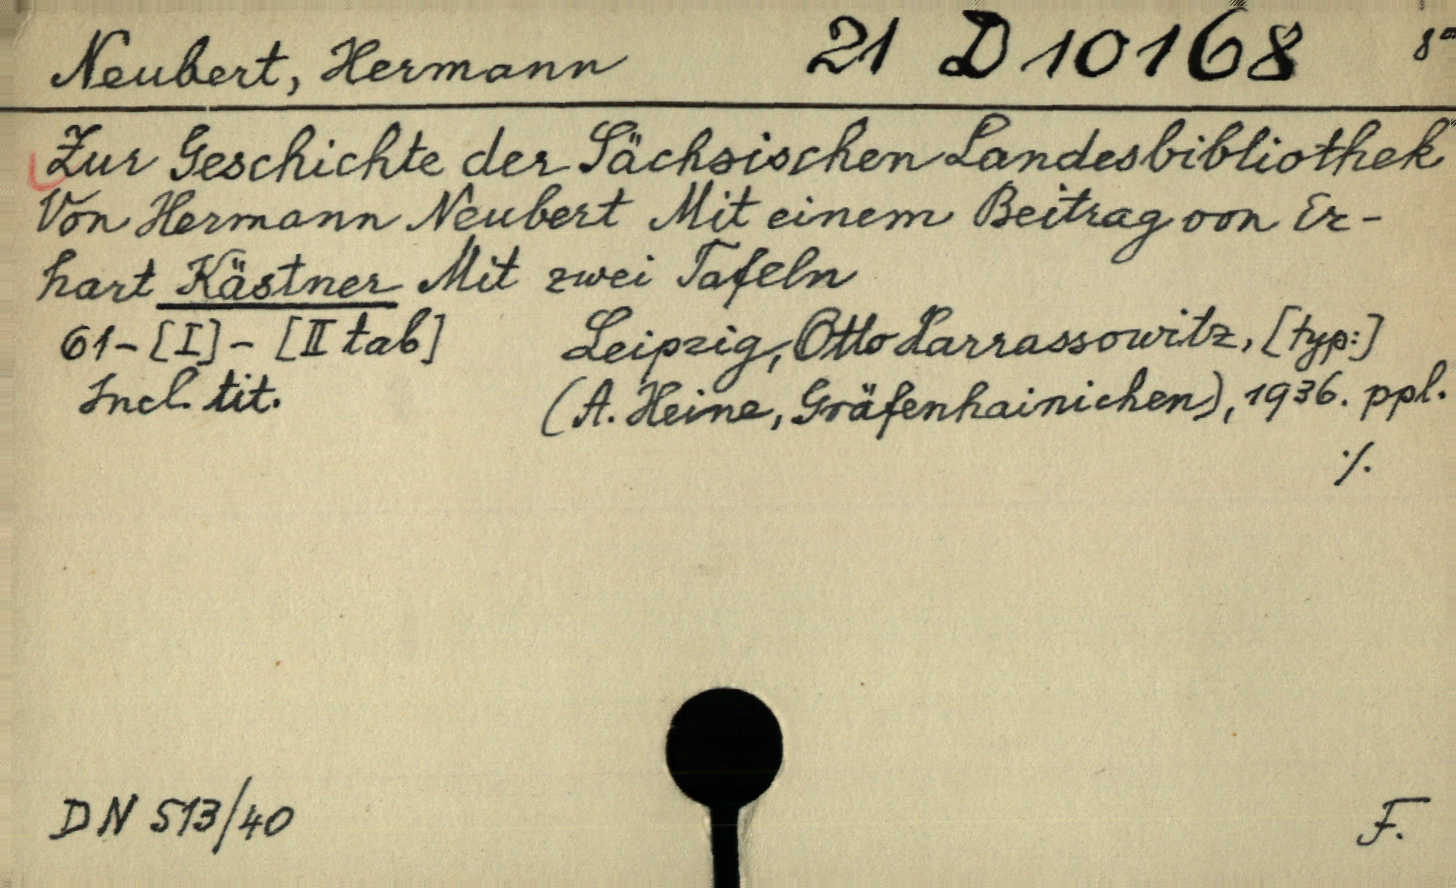 Neubert, Hermann 21 D 10168 8°
Zur Geschichte der Sächsischen Landesbibliothek
Von Hermann Neubert Mit einem Beitrag von Er-
hart Kästner Mit zwei Tafeln
61-[I]-[II tab] Leipzig, Otto Harrassowitz, [typ:]
Incl. tit. (A. Heine, Gräfenhainichen), 1936. ppl.
./.
DN 513/40 F.